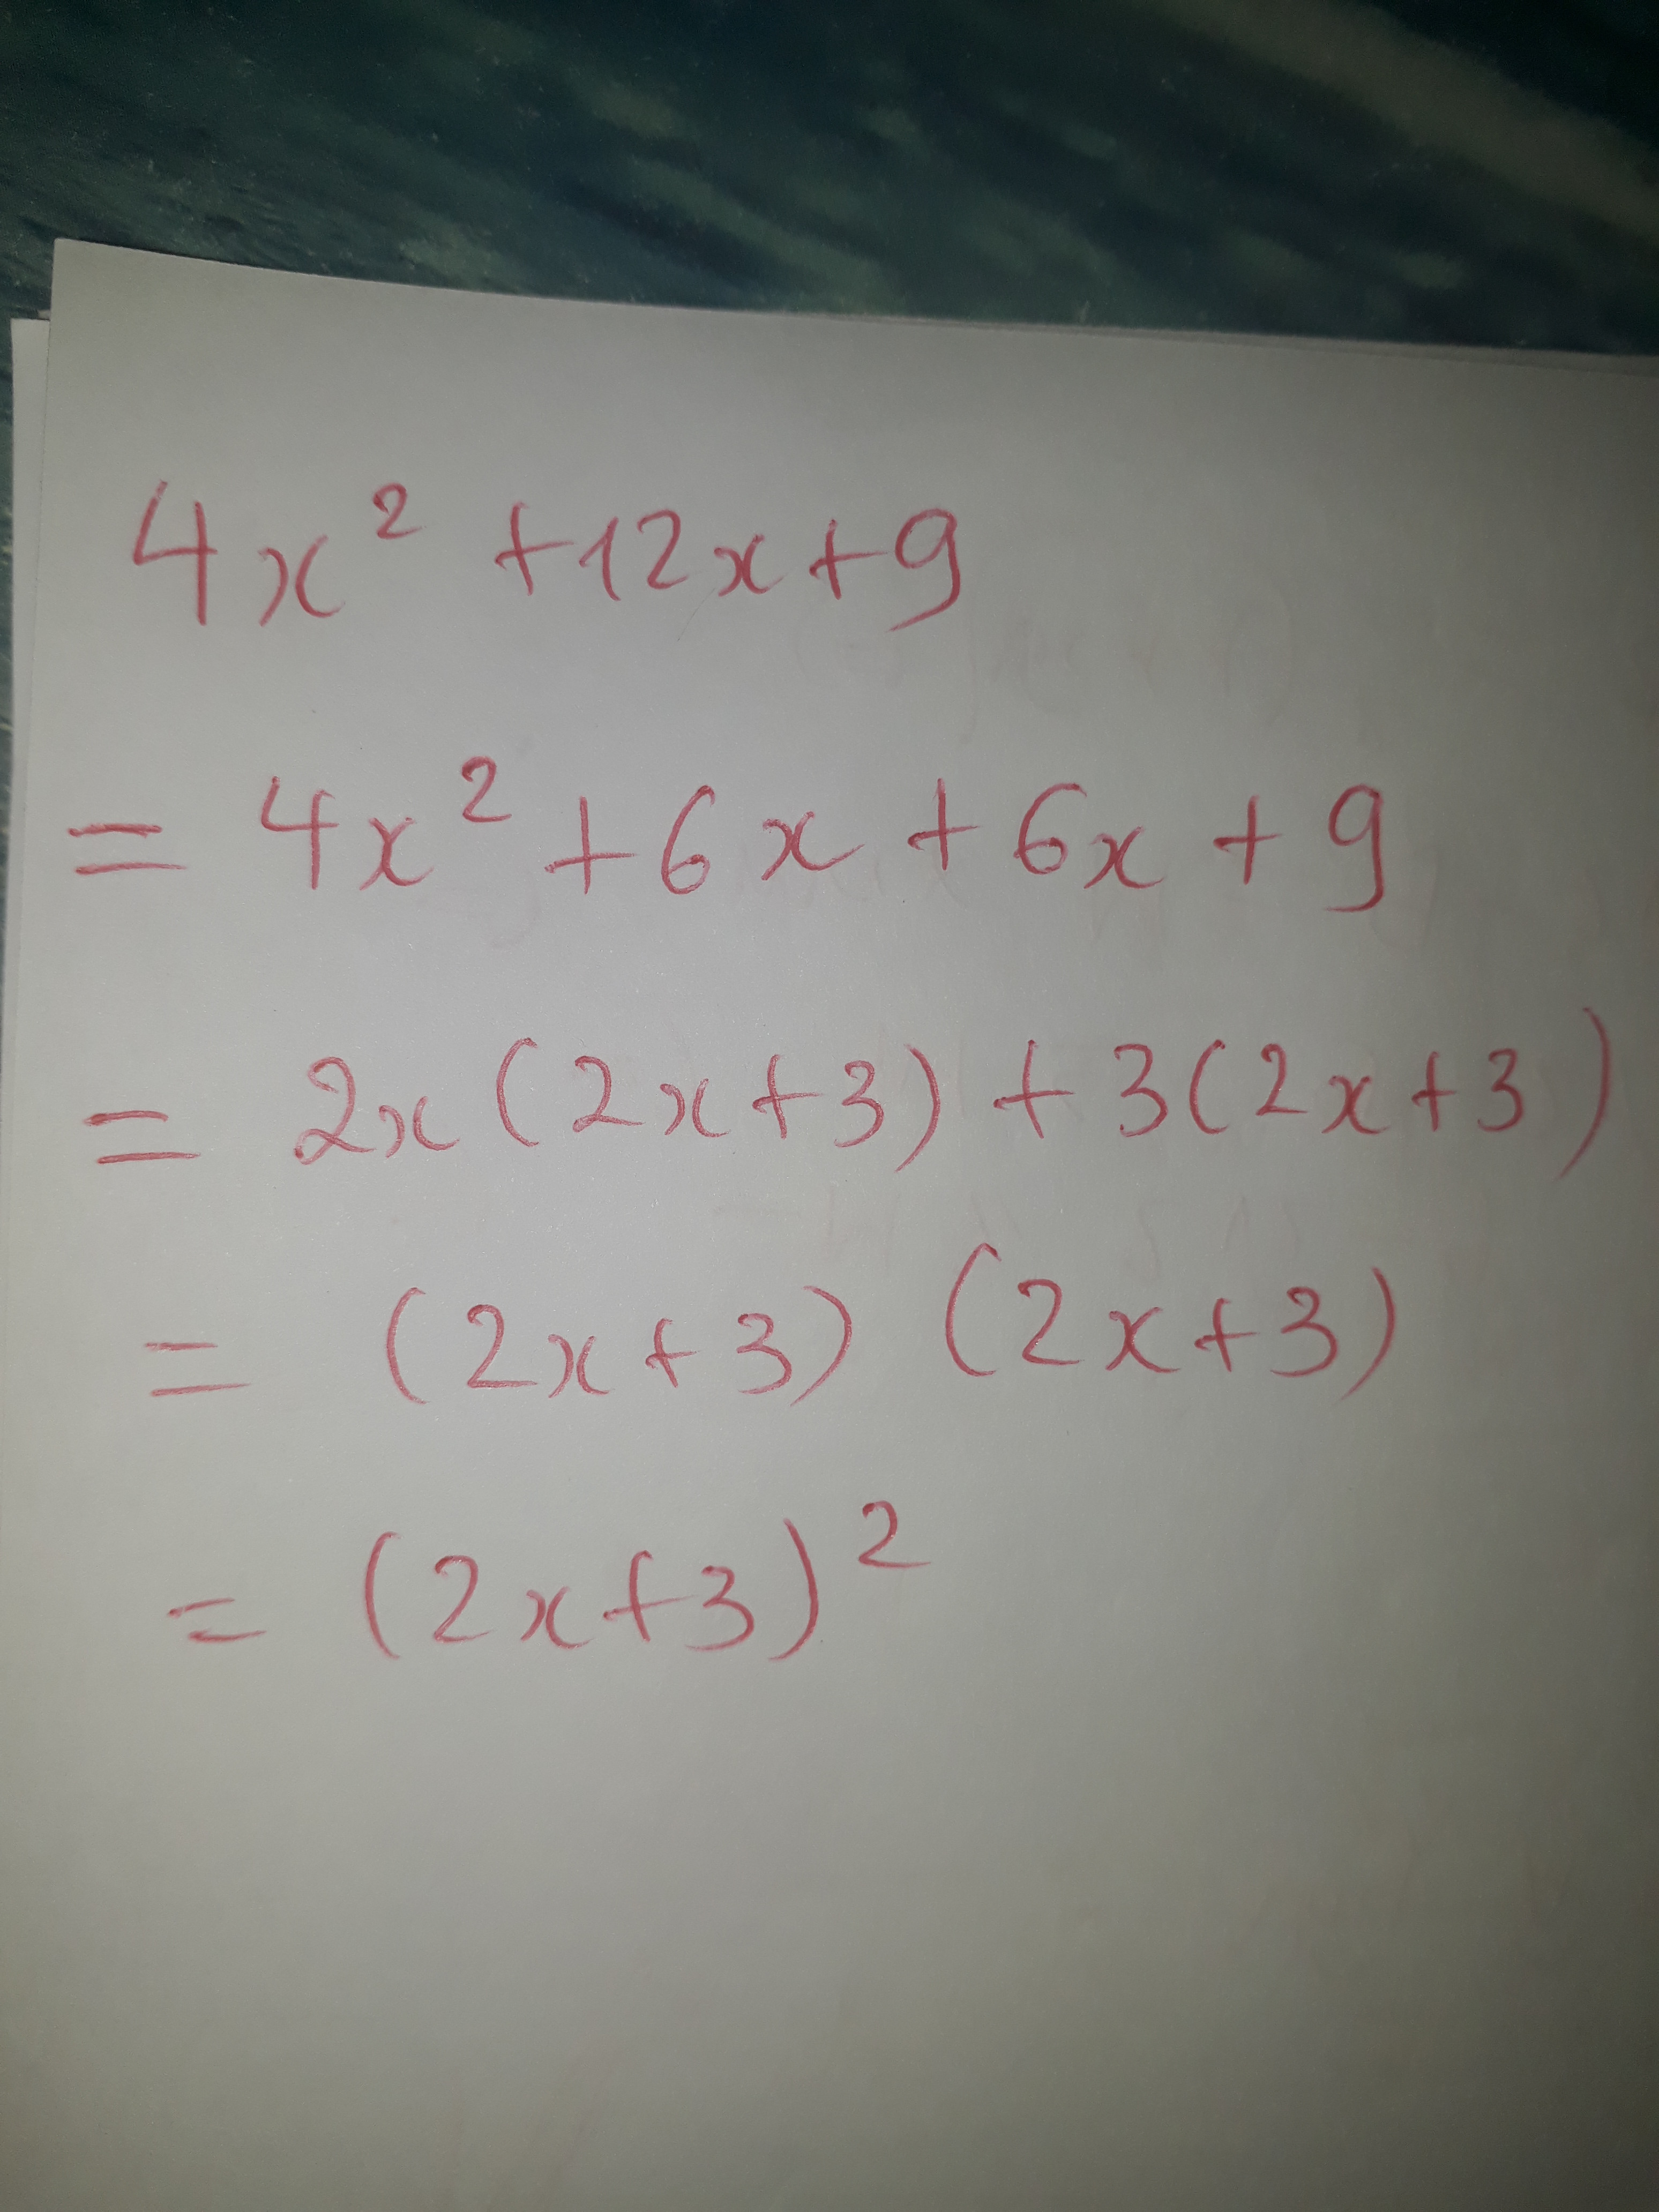 4x² +12x+9
= 4x² + 6x + 6x + 9
= 2x (2x+3) + 3(2x+3)
= (2x+3) (2x+3)
= (2x+3)²